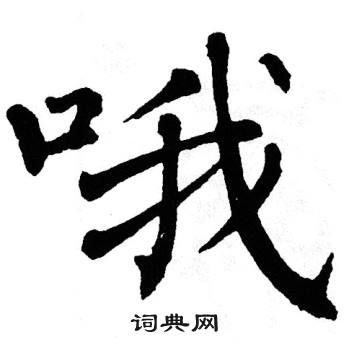 哦
词典网